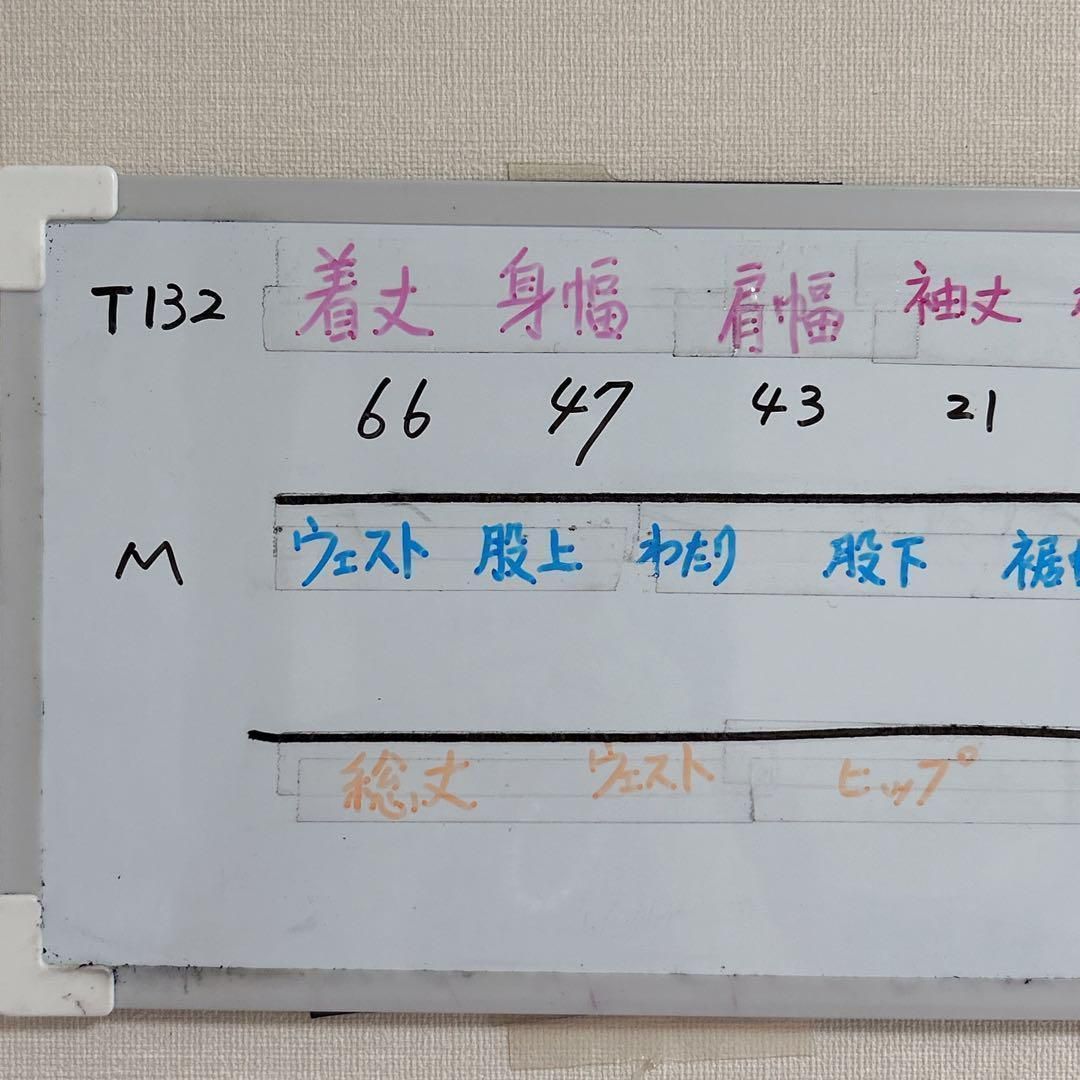 T132 着丈 身幅 肩幅 袖丈
66 47 43 21
M ウェスト 股上 わたり 股下 裾
総丈 ウェスト ヒップ